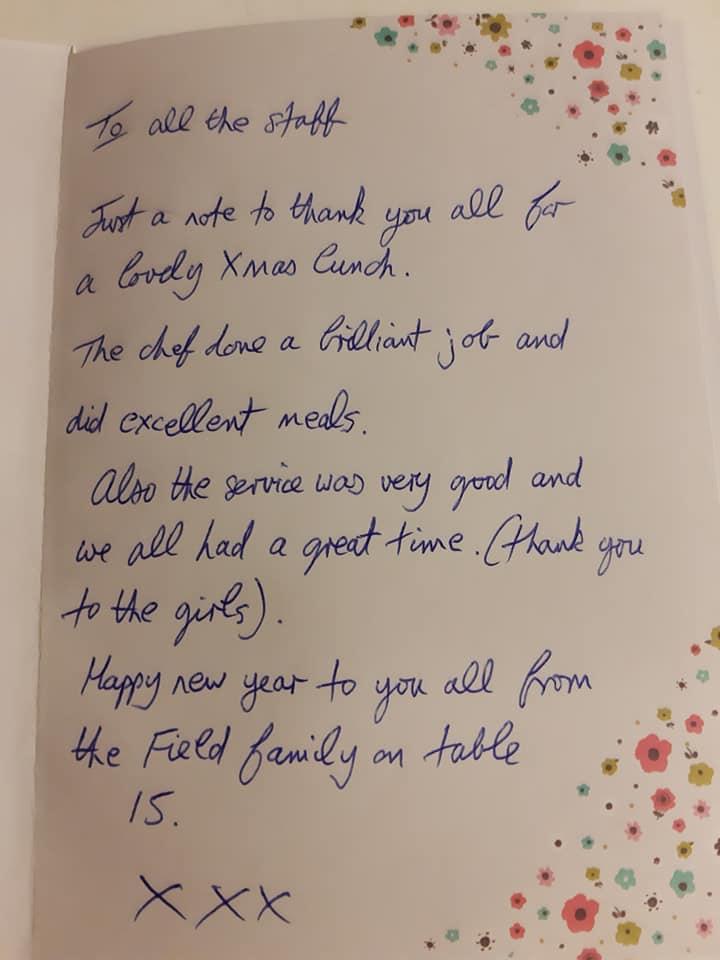 To all the staff
Just a note to thank you all for
a lovely Xmas lunch.
The chef done a brilliant job and
did excellent meals.
Also the service was very good and
we all had a great time. (thank you
to the girls).
Happy new year to you all from
the Field family on table
15.
XXX